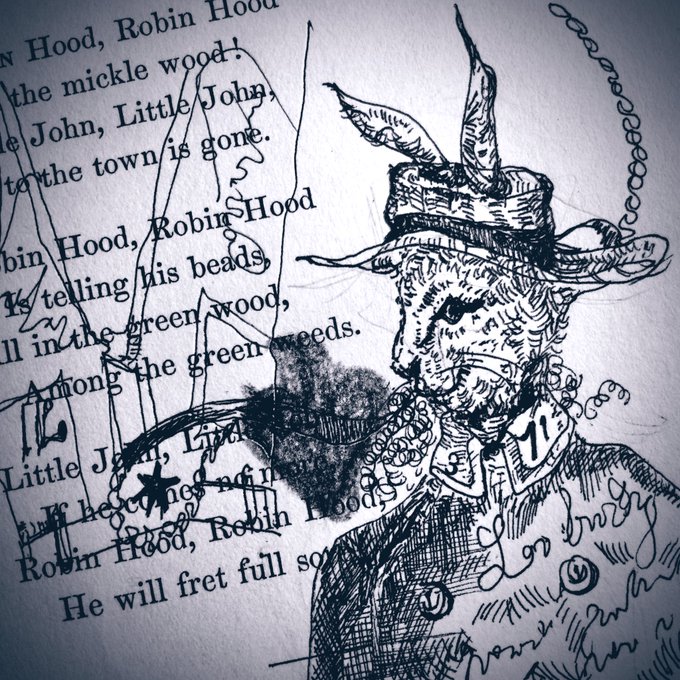 Hood, Robin Hood
the mickle wood!
John, Little John,
to the town is gone.
Hood, Robin Hood
Is telling his beads,
in the green wood,
Among the green weeds.
Little John,
If he comes no more
Robin Hood, Robin Hood,
He will fret full
3
11